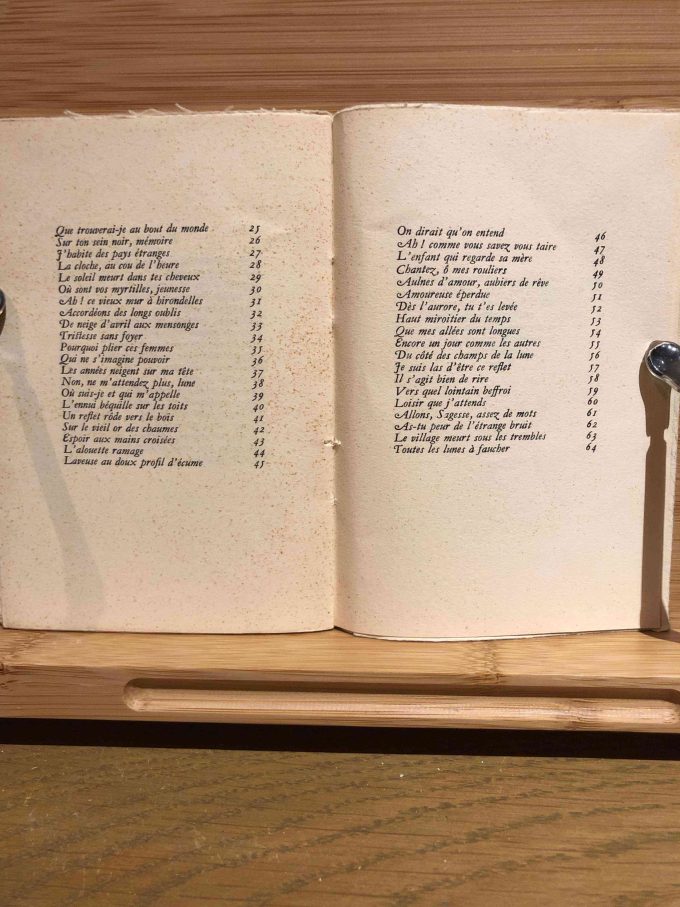 Que trouverai-je au bout du monde 25
Sur ton sein noir, mémoire 26
J'habite des pays étranges 27
La cloche, au cou de l'heure 28
Le soleil meurt dans tes cheveux 29
Où sont vos myrtilles, jeunesse 30
Ah ! ce vieux mur à hirondelles 31
Accordéons des longs oublis 32
De neige d'avril aux mensonges 33
Tristesse sans foyer 34
Pourquoi plier ces femmes 35
Qui ne s'imagine pouvoir 36
Les années neigent sur ma tête 37
Non, ne m'attendez plus, lune 38
Où suis-je et qui m'appelle 39
L'ennui béquille sur les toits 40
Un reflet rôde vers le bois 41
Sur le vieil or des chaumes 42
Espoir aux mains croisées 43
L'alouette ramage 44
Laveuse au doux profil d'écume 45
On dirait qu'on entend 46
Ah ! comme vous savez vous taire 47
L'enfant qui regarde sa mère 48
Chantez, ô mes rouliers 49
Aulnes d'amour, aubiers de rêve 50
Amoureuse éperdue 51
Dès l'aurore, tu t'es levée 52
Haut miroitier du temps 53
Que mes allées sont longues 54
Encore un jour comme les autres 55
Du côté des champs de la lune 56
Je suis las d'être ce reflet 57
Il s'agit bien de rire 58
Vers quel lointain beffroi 59
Loisir que j'attends 60
Allons, Sagesse, assez de mots 61
As-tu peur de l'étrange bruit 62
Le village meurt sous les trembles 63
Toutes les lunes à faucher 64